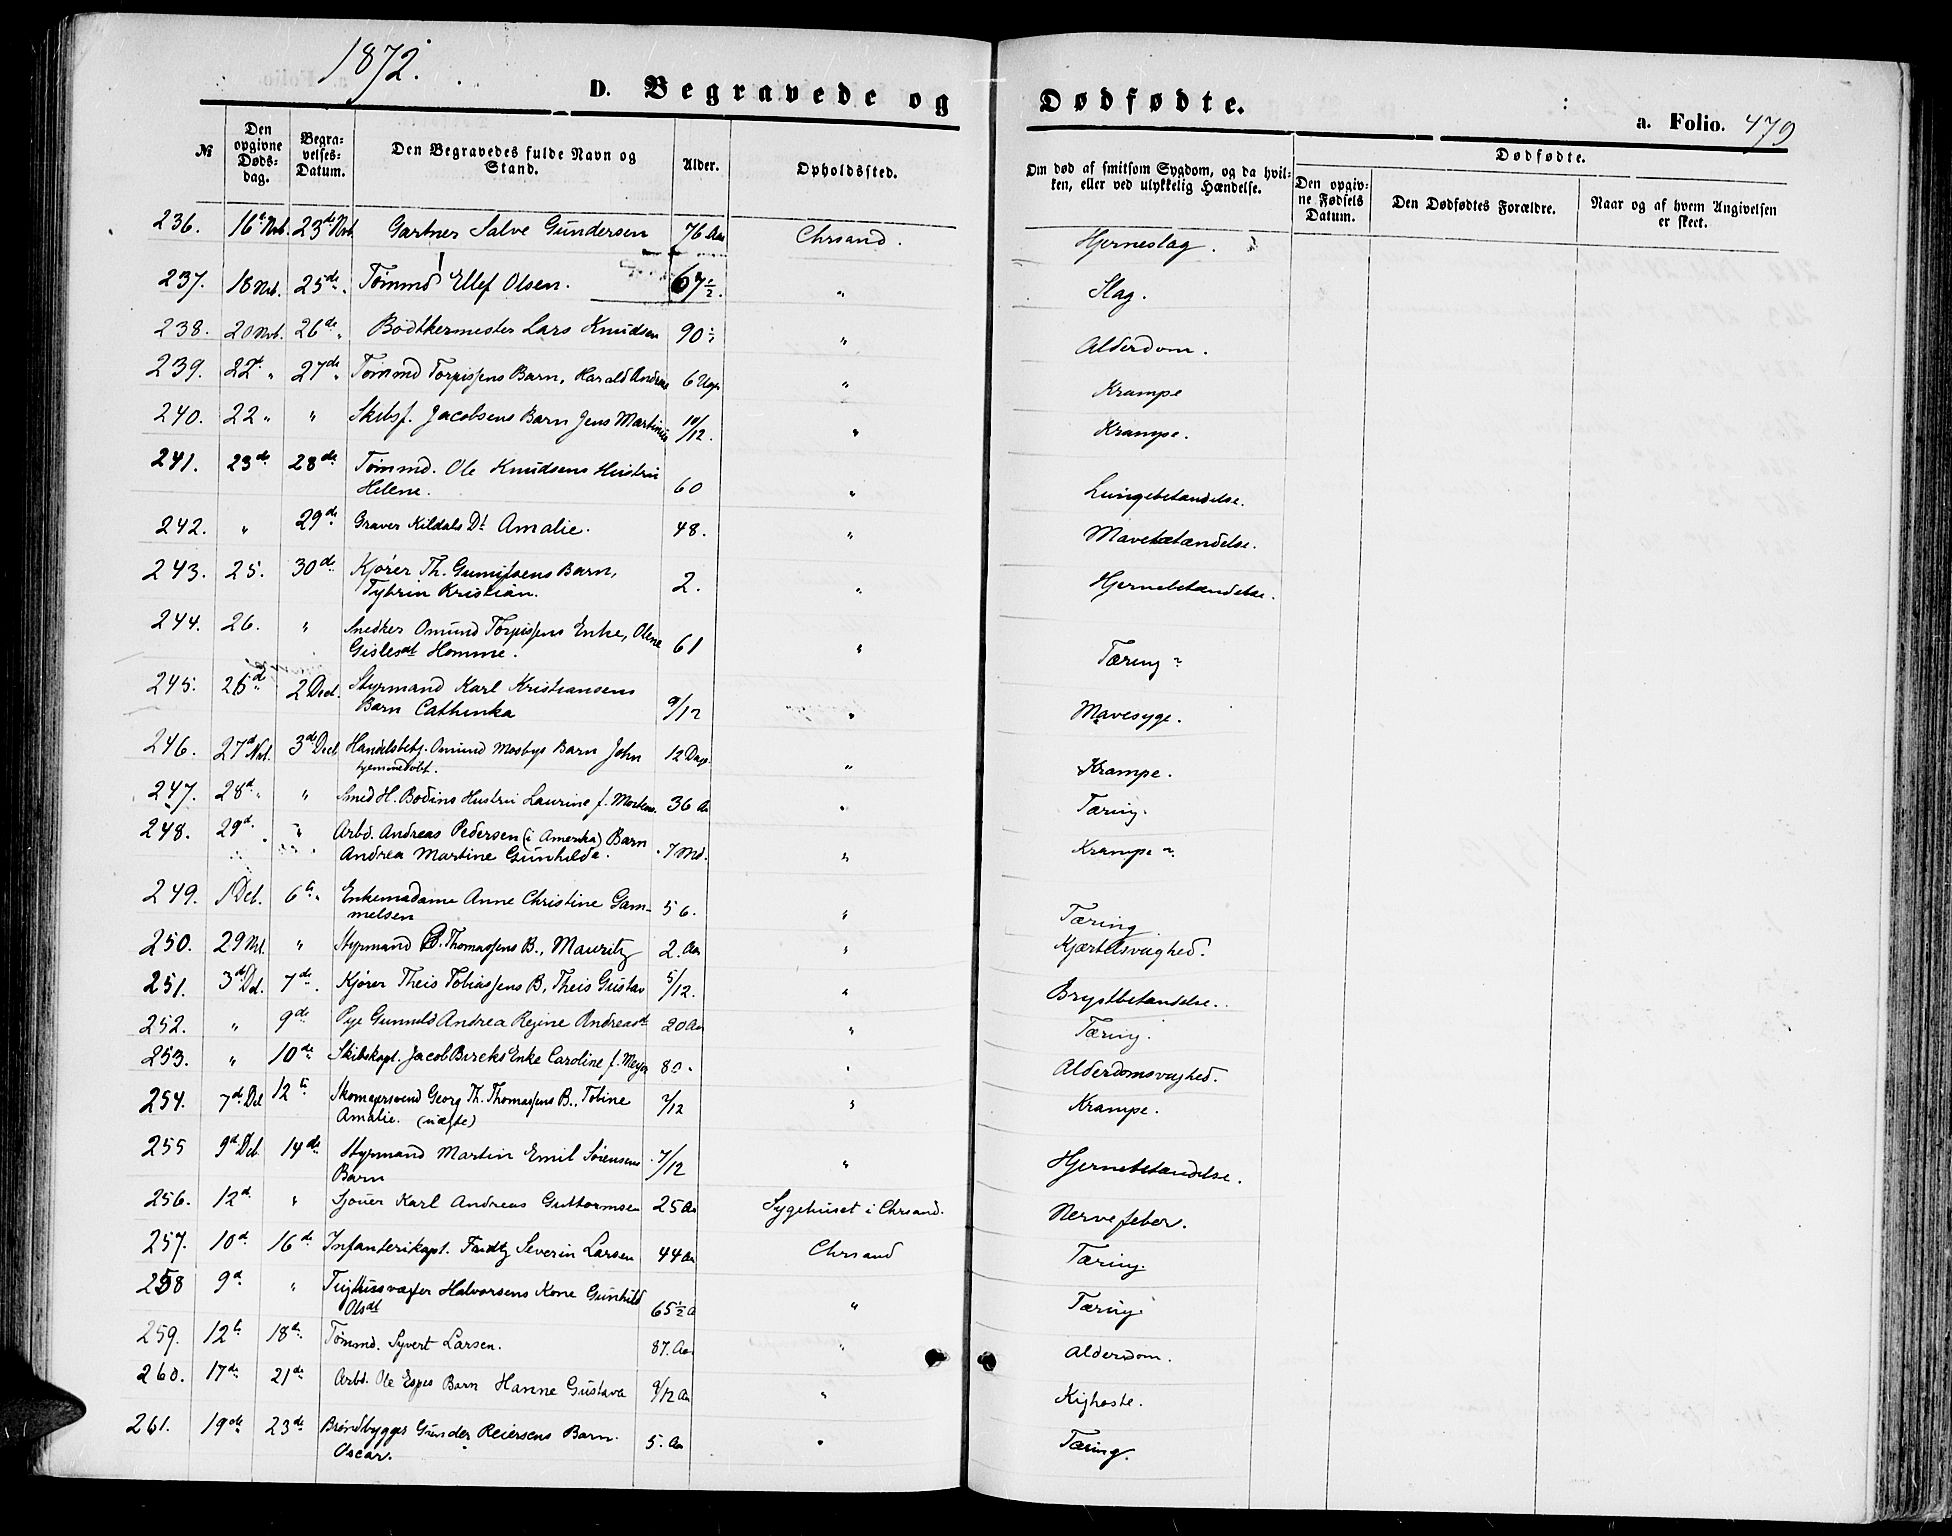 1872.
D. Begravede og Dødfødte.
a. Folio. 479
№ Den opgivne Døds-dag. Begra-velses-Datum. Den Begravedes fulde Navn og Stand. Alder. Opholdssted. Om død af smitsom Sygdom, og da hvil-ken, eller ved ulykkelig Hændelse. Dødfødte. Den opgiv-ne Fødsels Datum. Den Dødfødtes Forældre. Naar og af hvem Angivelsen er skeet.
236. 16 Nvb. 23de Nvb Gartner Salve Gundersen 76 Aar Chrsand. Hjerneslag.
237. 18 Nvb. 25de. Tømmd Ellef Olsen. 67 ½. " Slag.
238. 20 Nvb. 26de " Bødtkermester Lars Knudsen 90 " Alderdom.
239. 22d " 27de " Tømmd Torgissens Barn, Harald Andreas 6 Uger " Krampe
240. 22 " " Skibsf. Jacobsens Barn Jens Martinius 10/12. " Krampe.
241. 23de 28de Tømmd. Ole Knudsens Hustru
Helene. 60 " Lungebetændelse.
242. " 29de Graver Kildals Dt Amalie. 48. " Mavebetændelse.
243. 25. 30de Kjører Th. Gunnifsens Barn,
Tybrin Kristian. 2. " Hjernebetændelse.
244. 26. " Snedker Omund Torgissens Enke, Olene
Gislesdt Homme. 61 " Tæring
245. 26d " 2 Decb. Styrmand Karl Kristiansens
Barn Cathinka 9/12 " Mavesyge.
246. 27d Nvb. 3de Decb Handelsbetj. Omund Mosbys Barn John
hjemmedøbt. 12 Dage " Krampe.
247. 28d " " Smed H. Bodins Hustru Laurine f. Mortens. 36 Aa " Tæring.
248. 29d. " Arbd. Andreas Pedersen (i Amerika) Barn
Andrea Martine Gunhilde. 7 Md. " Krampe
249. 1 Dcb. 6te " Enkemadame Anne Christine Gam-
melsen 56. " Tæring
250. 29 Nvb. " Styrmand B. Thomassens B., Mauritz 2. Aar " Kjærtelsvaghed.
251. 3de Db. 7de. Kjører Theis Tobiassens B. Theis Gustav 5/12. " Brystbetændelse.
252. " 9de Pige Gunnild Andrea Regine Andreasdt 20 Aar " Tæring.
253. " 10de " Skibskapt. Jacob Bircks Enke Caroline f. Meyer 80 " " Alderdomsvaghed.
254. 7de Db 12te Skomagersvend Georg Th. Thomassens B., Tobine
Amalie. (uægte) 2/12 " Krampe.
255 9d Dcb. 14de Styrmand Martin Emil Sørensens
Barn 7/12 " Hjernebetændelse.
256. 12d. " Sjouer Karl Andreas Guttormsen 25 Aa Sygehuset i Chrsand. Nervefeber.
257. 10d 16de Infanterikapt. Fridtz Severin Larsen 44 Aar Chrsand Tæring.
258 9d " Tugthusvægter Halvorsens Kone Gunhild
Olsdt 65 ½ A " Tæring
259. 12te 18de Tømmd. Syvert Larsen. 87. Aar " Alderdom.
260. 17de 21de Arbd. Ole Espes Barn Hanne Gustava 9/12 Aa " Kighoste.
261. 19de 23de Brøndbygger Gunder Reiersens Barn.
Oscar. 5. Aar " Tæring.